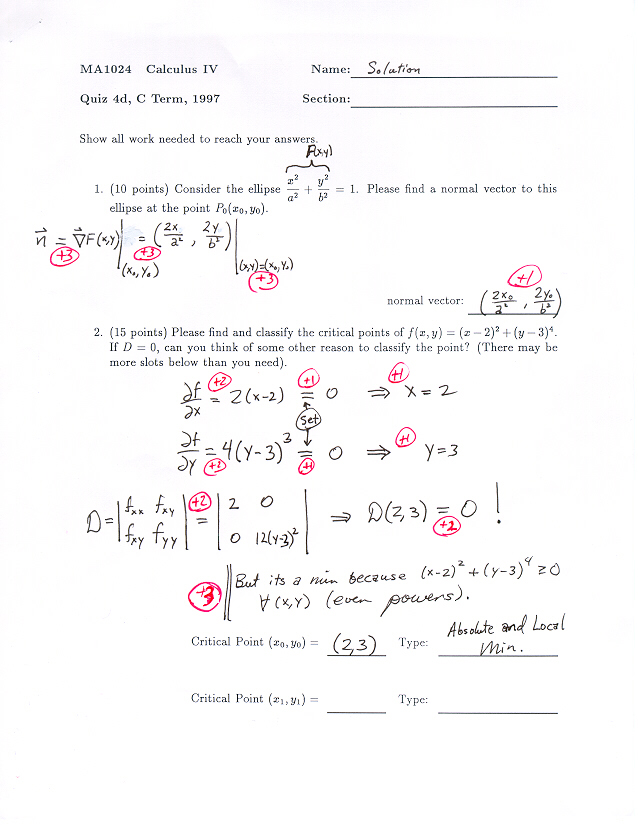 MA1024 Calculus IV Name: Solution
Quiz 4d, C Term, 1997 Section:
Show all work needed to reach your answers.
F(x,y)
1. (10 points) Consider the ellipse x²/a² + y²/b² = 1. Please find a normal vector to this
ellipse at the point P₀(x₀, y₀).
n⃗ = ∇⃗F(x,y)|(x₀,y₀) = (2x/a², 2y/b²)|(x,y)=(x₀,y₀)
+3 +3 +3
+1
normal vector: (2x₀/a², 2y₀/b²)
2. (15 points) Please find and classify the critical points of f(x, y) = (x − 2)² + (y − 3)⁴.
If D = 0, can you think of some other reason to classify the point? (There may be
more slots below than you need).
+2 +1 +1
∂f/∂x = 2(x-2) = 0 ⇒ x = 2
Set
∂f/∂y = 4(y-3)³ = 0 ⇒ y=3
+2 +1 +1
D = |fxx fxy| = |2 0| ⇒ D(2,3) = 0 !
|fxy fyy| |0 12(y-3)²|
+2 +2
But its a min because (x-2)² + (y-3)⁴ ≥ 0
+3 ∀ (x,y) (even powers).
Absolute and Local
Critical Point (x₀, y₀) = (2,3) Type: Min.
Critical Point (x₁, y₁) = Type: